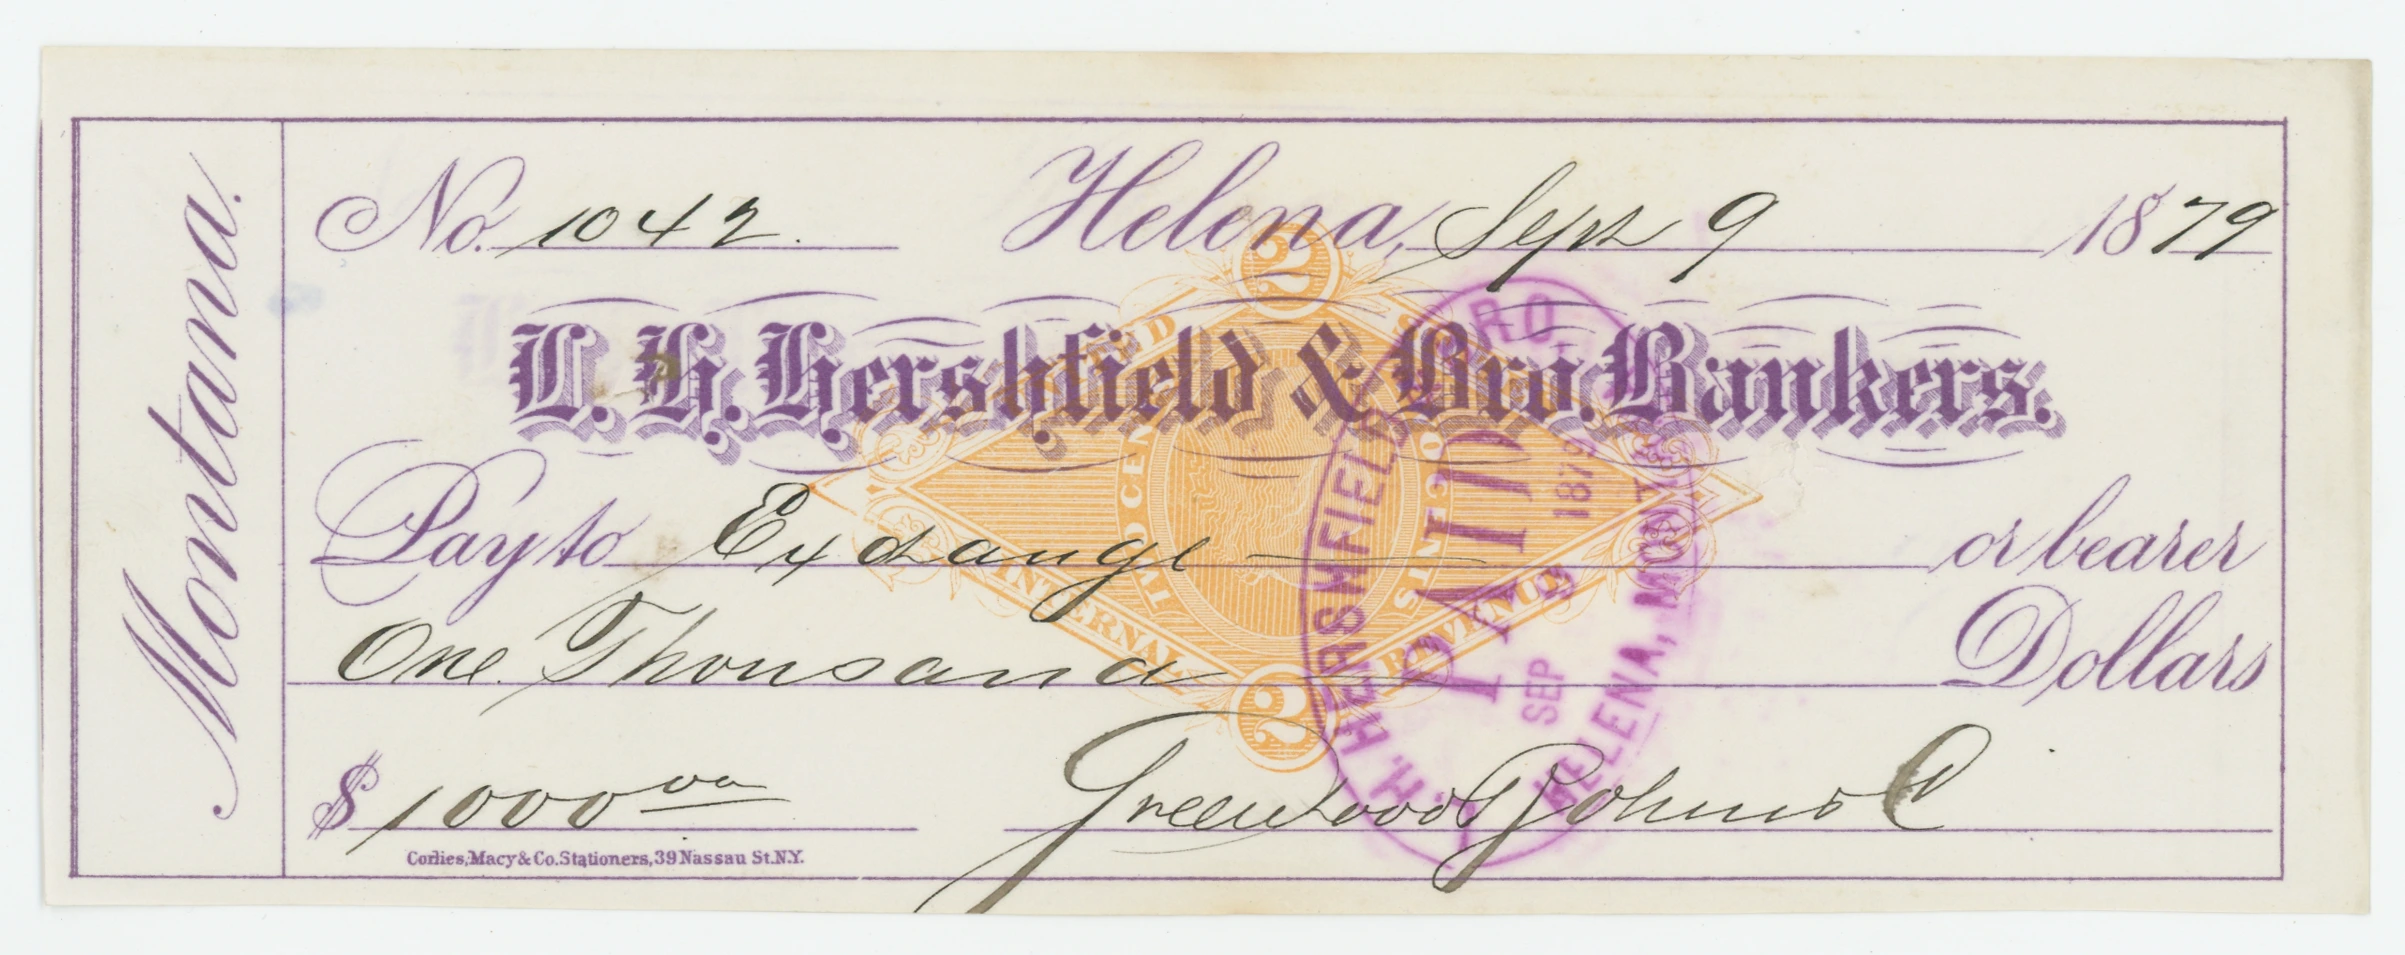 Montana.
No. 1042. Helena, Sept 9 1879
L. H. Hershfield & Bro. Bankers.
Pay to Exchange or bearer
One Thousand Dollars
$ 1000 00
Greenwood Bohms C
Corlies, Macy & Co. Stationers, 39 Nassau St. N.Y.
2
UNITED STATES
TWO CENTS
INTERNAL REVENUE
2
L. H. HERSHFIELD & BRO.
PAID
SEP 9 1879
HELENA, MONT.